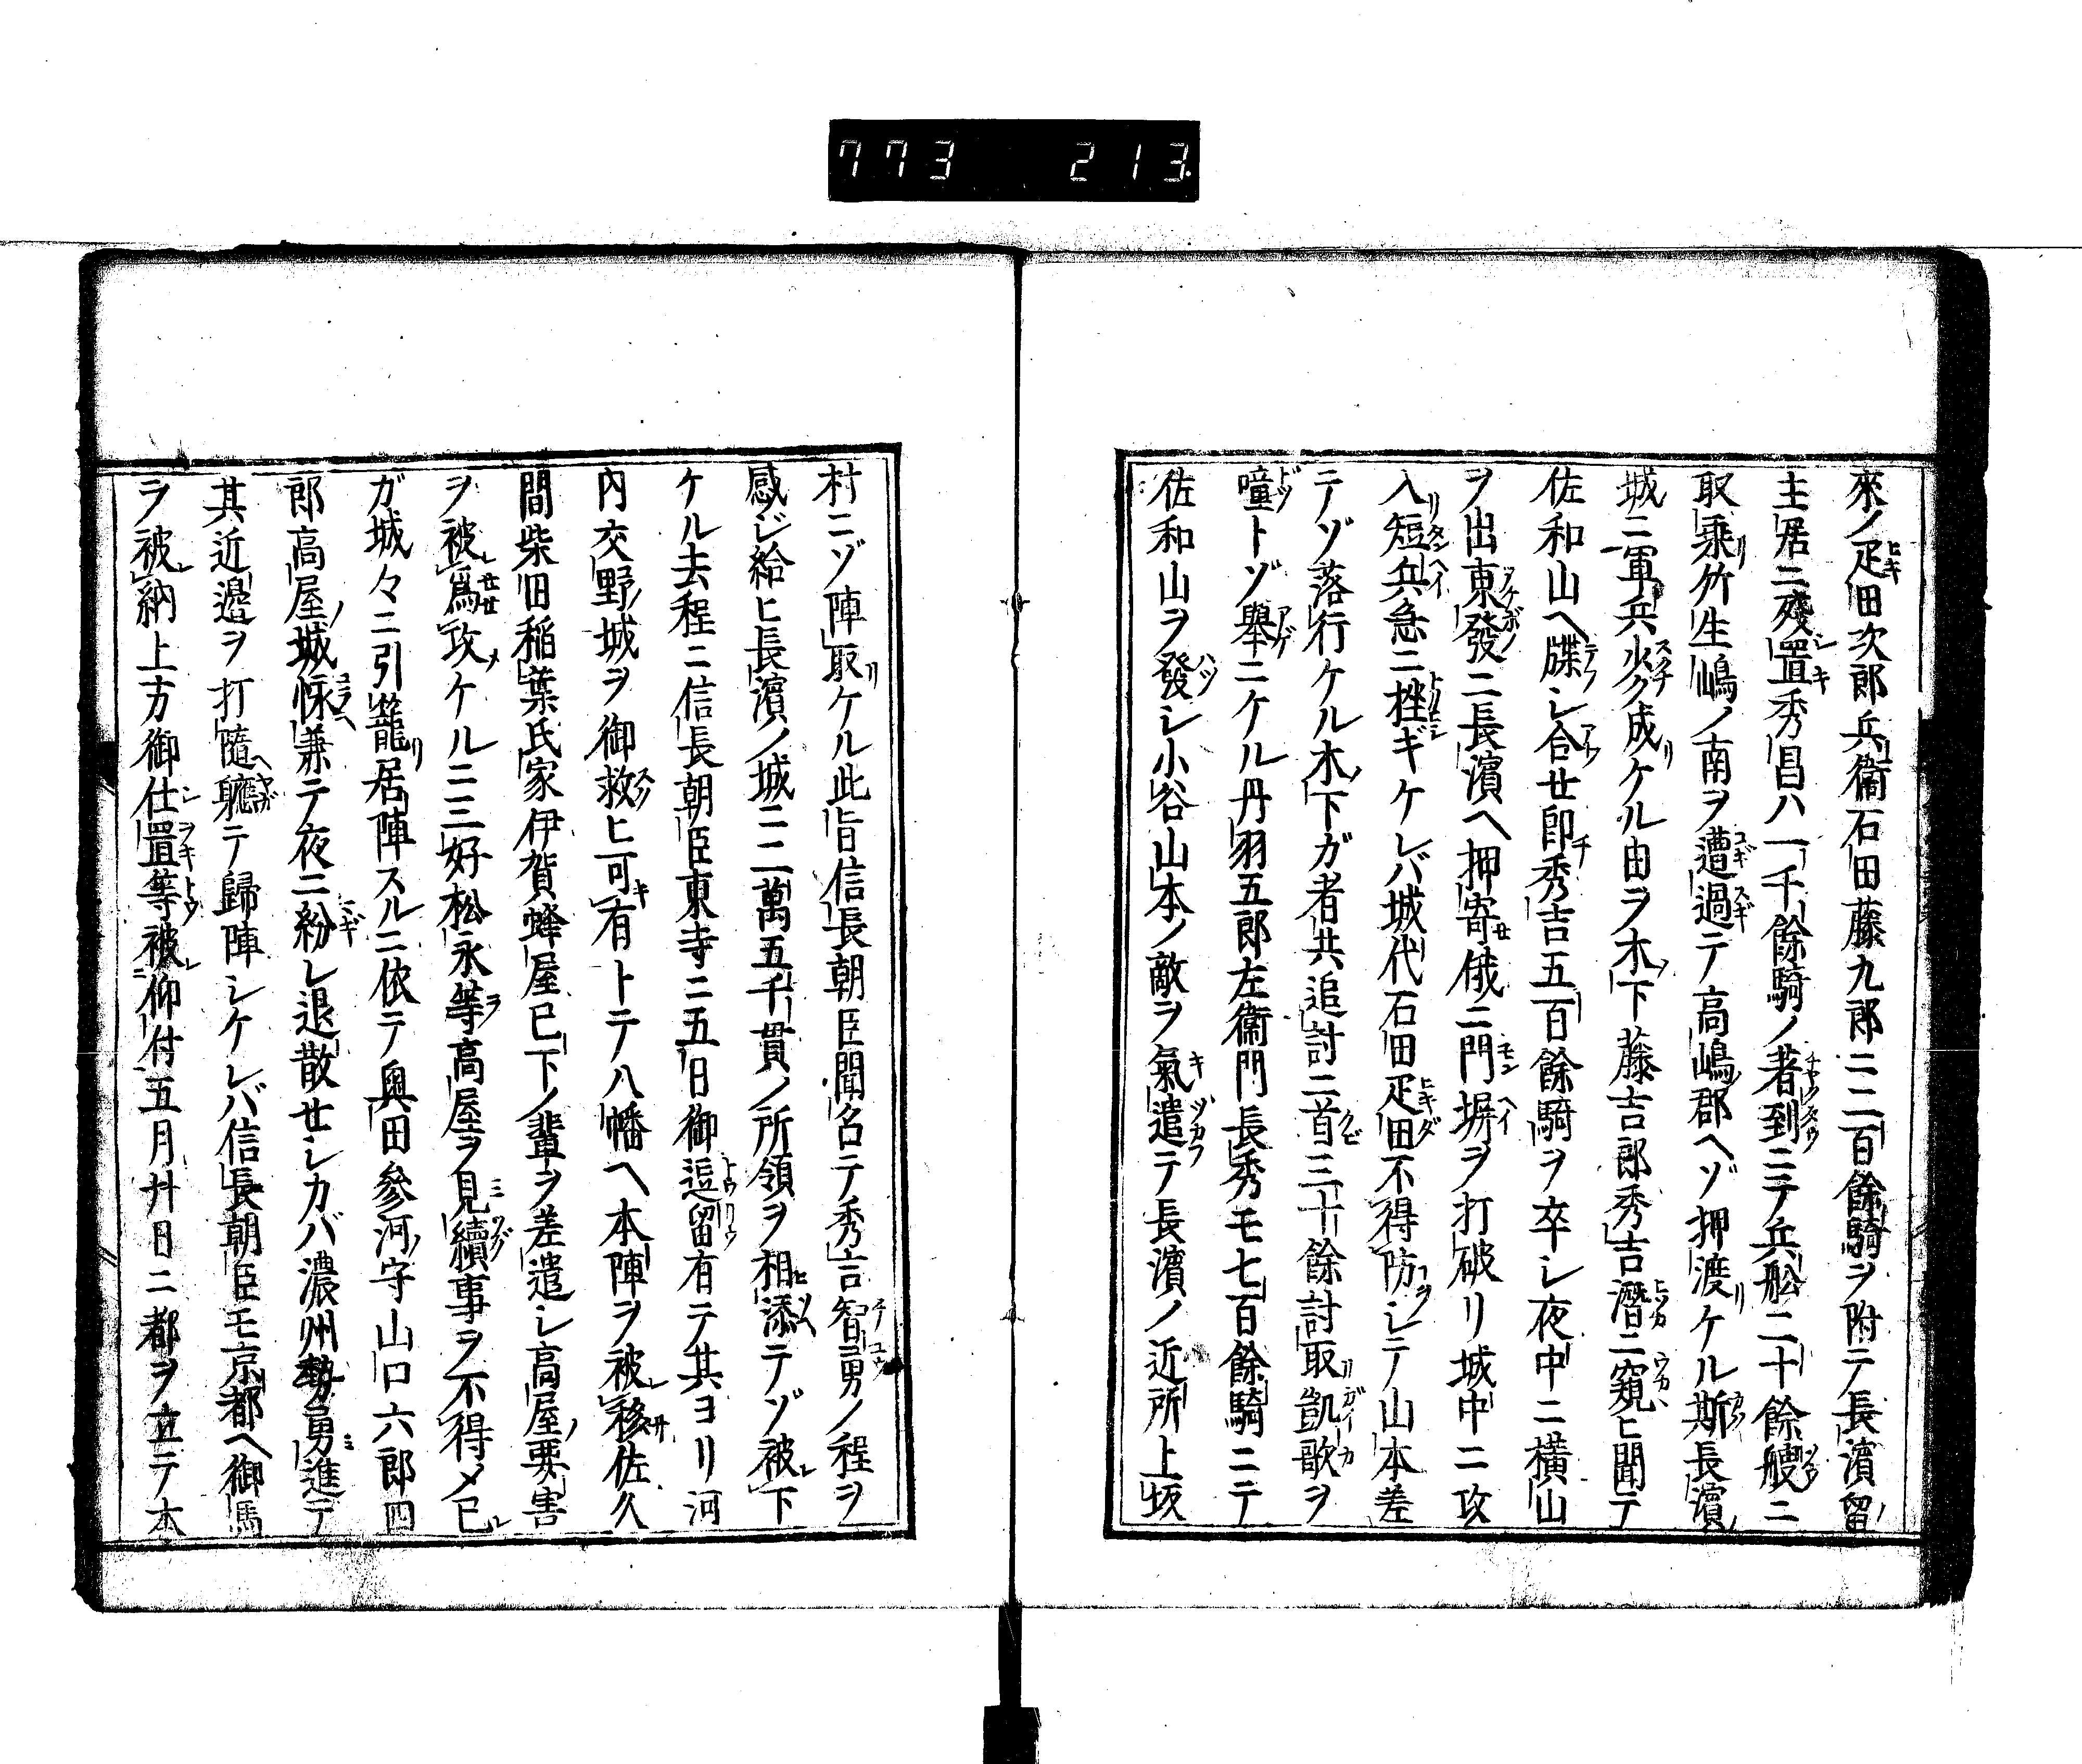 773 213
來ノ疋田次郎兵衞石田藤九郎ニ二百餘騎ヲ附テ長濱留
主居ニ殘置秀昌ハ一千餘騎ノ者到ニテ兵舩二十餘艘ニ
取乗竹生嶋ノ南ヲ遭過テ高嶋郡ヘゾ押渡ケル斯長濱ノ
城ニ軍兵少ク成ケル由ヲ木下藤吉郎秀吉潛ニ窺ヒ聞テ
佐和山ヘ牒シ合セ即秀吉五百餘騎ヲ卒シ夜中ニ横山
ヲ出東發ニ長濱ヘ押寄俄ニ門塀ヲ打破リ城中ニ攻
入短兵急ニ挫ギケレバ城代石田疋田不得防シテ山本差
テゾ落行ケル木下ガ者共追討ニ首三十餘討取凱歌ヲ
噇トゾ舉ニケル丹羽五郎左衞門長秀モ七百餘騎ニテ
佐和山ヲ發シ小谷山本ノ敵ヲ氣遣テ長濱ノ近所上坂
村ニゾ陣取ケル此旨信長朝臣聞名テ秀吉智勇ノ程ヲ
感ジ給ヒ長濱ノ城ニ二萬五千貫ノ所領ヲ相添テゾ被下
ケル去程ニ信長朝臣東寺ニ五日御逗留有テ其ヨリ河
内交野ノ城ヲ御救ヒ可有トテ八幡ヘ本陣ヲ被移佐久
間柴田稲葉氏家伊賀蜂屋已下ノ輩ヲ差遣シ高屋要害
ヲ被爲攻ケルニ三好松永等高屋ヲ見續事ヲ不得メ已
ガ城々ニ引籠居陣スルニ依テ奥田參河守山口六郎四
郎高屋城怺兼テ夜ニ紛レ退散セシカバ濃州勢勇進テ
其近邊ヲ打隨聽テ歸陣シケレバ信長朝臣モ京都ヘ御馬
ヲ被納上方御仕置等被仰付五月廾日ニ都ヲ立テ本